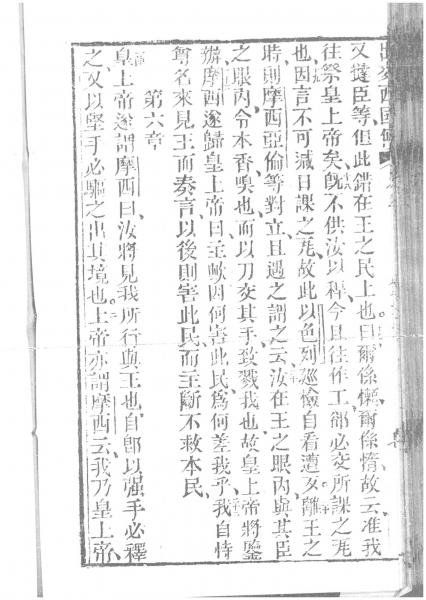 又撻臣等、但此錯在王之民上也。曰、爾係懶、爾係惰、故云、准我
往祭皇上帝矣。既不供汝以稈、今且往作工、卻必交所課之瓦
也、因言不可減日課之瓦、故此以色列巡儉自看遭歹、離王之
時、則摩西亞倫等對立、且遇之、謂之云、汝在王之眼內、與其臣
之眼內、令本香嗅也、而以刀交其手、致戮我也、故皇上帝將鑒
摩西遂歸皇上帝曰、主歟、因何害此民、為何差我乎、我自恃
尊名來見王而奏言以後、則害此民、而主斷不救本民、
第六章
皇上帝遂謂摩西曰、汝將見我所行與王也、自卽以强手必釋
之、又以堅手必驅之出其境也、上帝亦謂摩西云、我乃皇上帝、